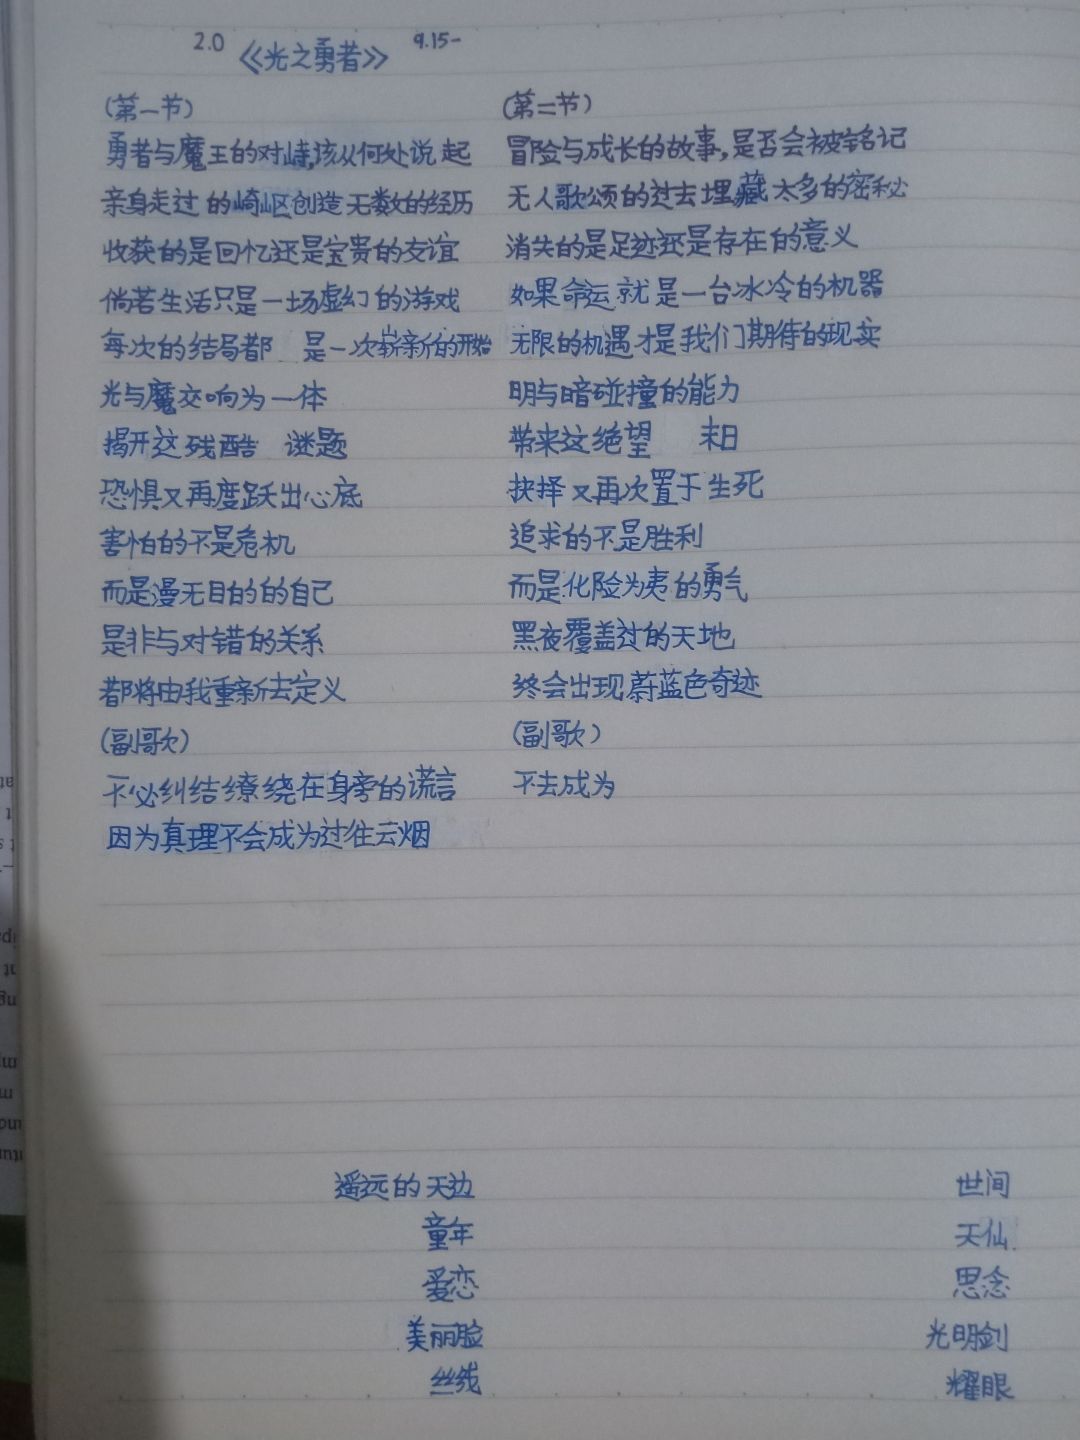 2.0 《光之勇者》 9.15-
(第一节)
勇者与魔王的对峙,该从何处说起
亲身走过的崎岖创造无数的经历
收获的是回忆还是宝贵的友谊
倘若生活只是一场虚幻的游戏
每次的结局都 是一次崭新的开始
光与魔交响为一体
揭开这残酷 谜题
恐惧又再度跃出心底
害怕的不是危机
而是漫无目的的自己
是非与对错的关系
都将由我重新去定义
(副歌)
不必纠结缭绕在身旁的谎言
因为真理不会成为过往云烟
(第二节)
冒险与成长的故事,是否会被铭记
无人歌颂的过去埋藏太多的密秘
消失的是足迹还是存在的意义
如果命运就是一台冰冷的机器
无限的机遇才是我们期待的现实
明与暗碰撞的能力
带来这绝望 末日
抉择又再次置于生死
追求的不是胜利
而是化险为夷的勇气
黑夜覆盖过的天地
终会出现蔚蓝色奇迹
(副歌)
不去成为
遥远的天边
童年
爱恋
美丽脸
丝线
世间
天仙
思念
光明剑
耀眼